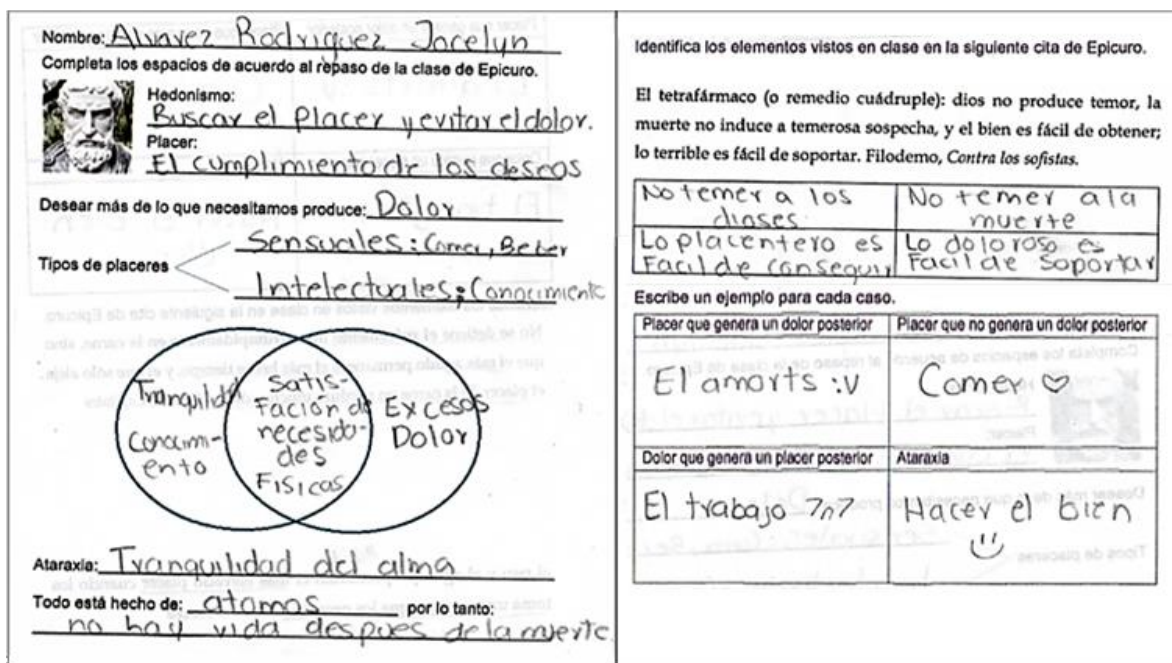 Nombre: Alvarez Rodriguez Jocelyn
Completa los espacios de acuerdo al repaso de la clase de Epicuro.
Hedonismo:
Buscar el Placer y evitar el dolor.
Placer:
El cumplimiento de los deseos
Desear más de lo que necesitamos produce: Dolor
Sensuales: Comer, Beber
Tipos de placeres
Intelectuales: Conocimiento
Tranquilidad
Conocimi-
ento
Satis-
facion de
necesida-
des
Fisicas
Excesos
Dolor
Ataraxia: Tranquilidad del alma
Todo está hecho de: atomos por lo tanto:
no hay vida despues de la muerte.
Identifica los elementos vistos en clase en la siguiente cita de Epicuro.
El tetrafármaco (o remedio cuádruple): dios no produce temor, la
muerte no induce a temerosa sospecha, y el bien es fácil de obtener;
lo terrible es fácil de soportar. Filodemo, Contra los sofistas.
No temer a los
dioses.
No temer a la
muerte
Lo placentero es
Facil de conseguir
Lo doloroso es
Facil de soportar
Escribe un ejemplo para cada caso.
Placer que genera un dolor posterior
Placer que no genera un dolor posterior
El amorts :v
Comer ♡
Dolor que genera un placer posterior
Ataraxia
El trabajo 7n7
Hacer el bien